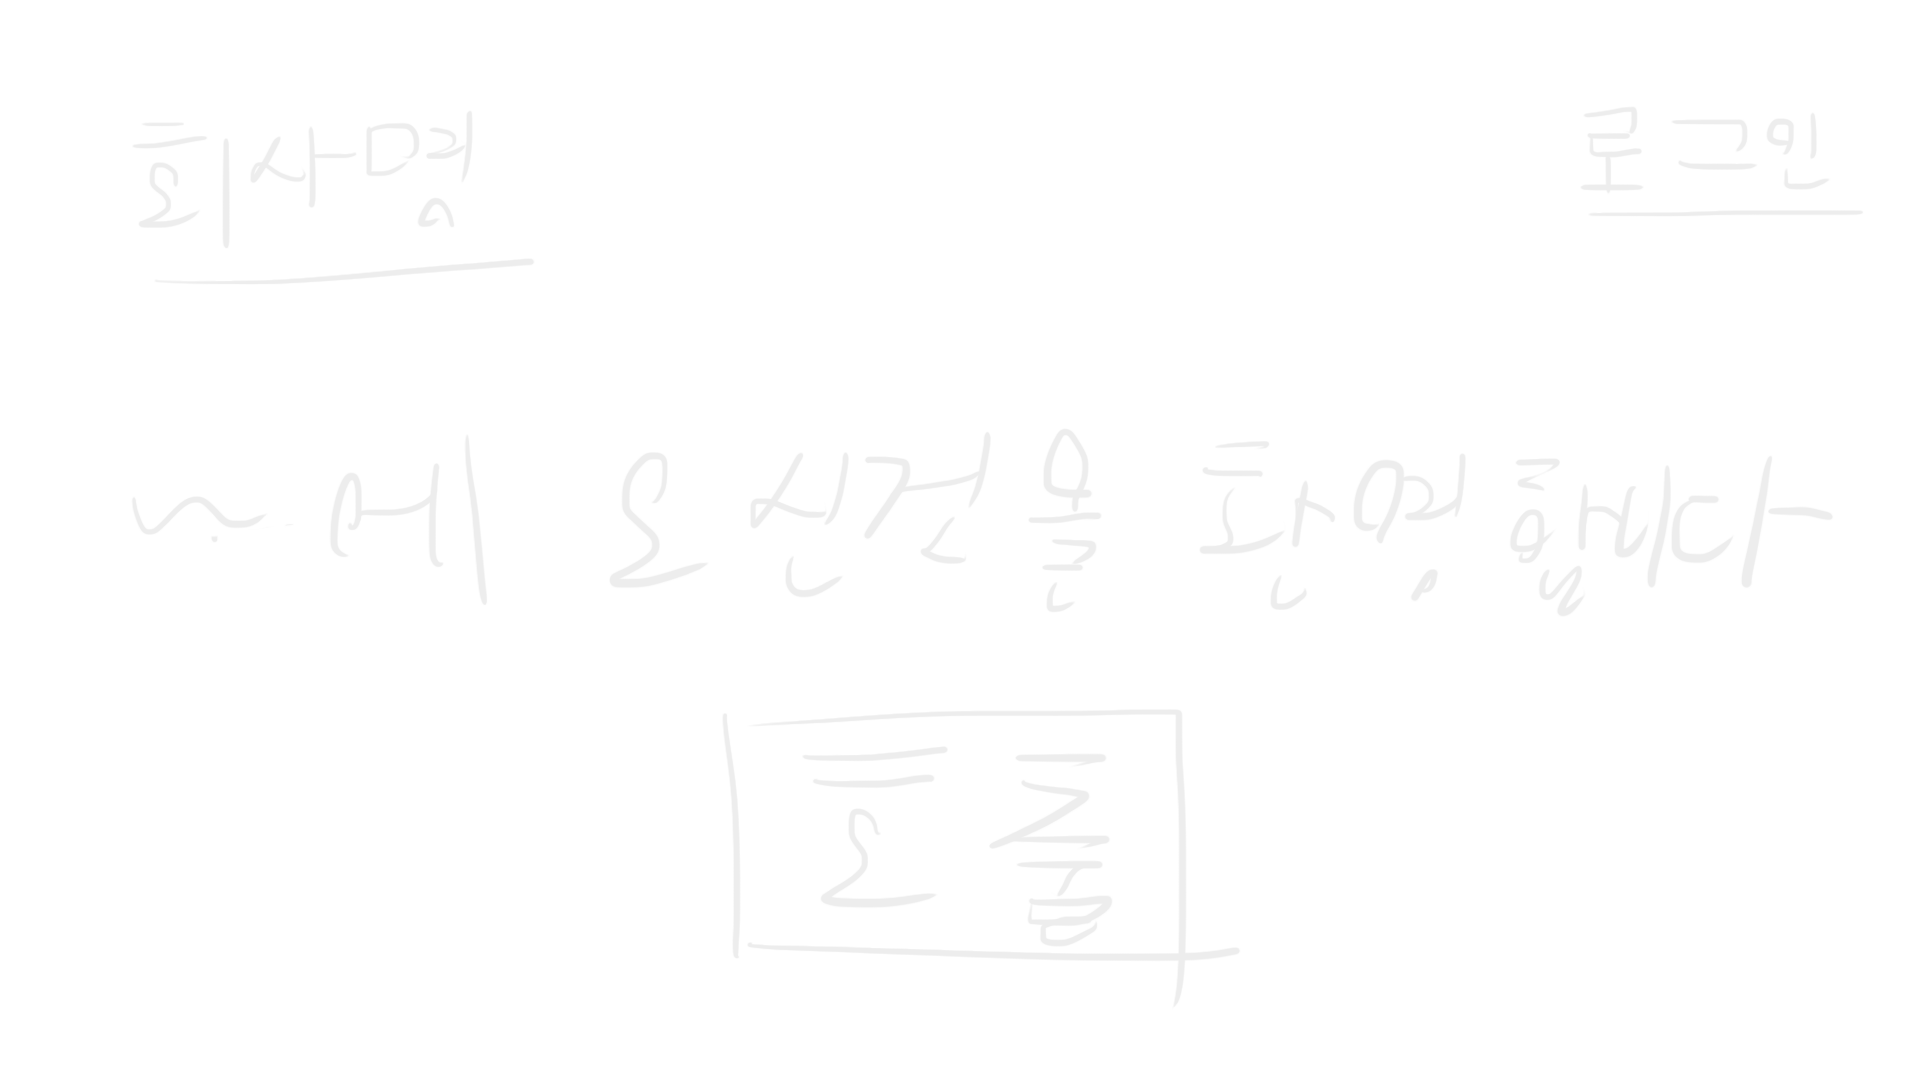 회사명 로그인
~에 오신건을 환영합니다